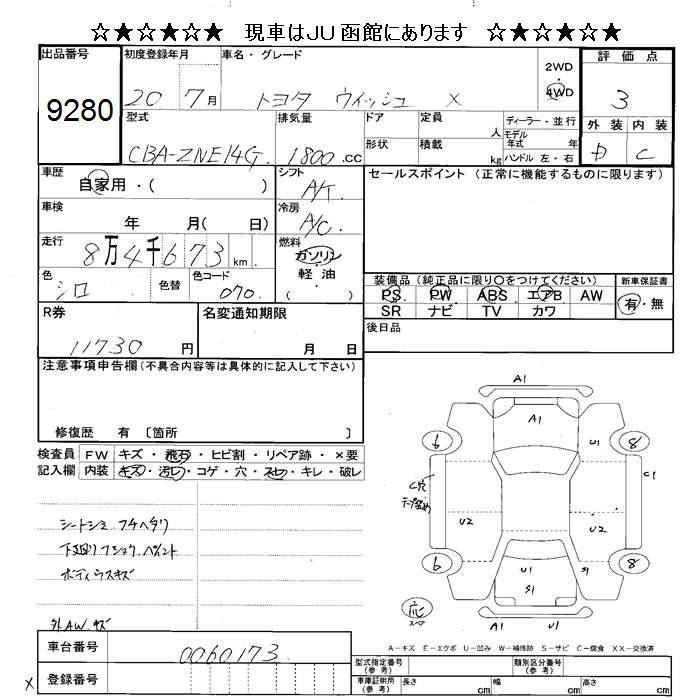 ☆★☆★☆ 現車はJU函館にあります ☆★☆★☆
出品番号 初度登録年月 車名・グレード 2WD 評価点
9280 20 7月 トヨタ ウィッシュ X 4WD 3
型式 排気量 ドア 定員 人 ディーラー・並行 外装 内装
CBA-ZNE14G 1800 .cc 形状 積載 kg モデル年式 年 D C
ハンドル 左・右
車歴 自家用・( ) シフト A/T セールスポイント (正常に機能するものに限ります)
車検 年 月( 日) 冷房 A/C
走行 8万4千673 km 燃料 ガソリン
軽油
( )
色 シロ 色替 色コード 070 装備品 (純正品に限り○をつけてください) 新車保証書
PS PW ABS エアB AW 有・無
SR ナビ TV カワ
R券 名変通知期限 後日品
11730 円 月 日
注意事項申告欄(不具合内容等は具体的に記入して下さい)
修復歴 有 〔箇所 〕
検査員 FW キズ・飛石・ヒビ割・リペア跡・×要
記入欄 内装 キズ・汚レ・コゲ・穴・スレ・キレ・破レ
A1
A1
6 U1 8
C穴 C1
テープ留め
U2 U2
6 U1 S1 8
S1
応
スペア
A1 U1
シートシミ フチヘタリ
下廻り フショク ペイント
ボディウスキズ
外AWキズ
A-キズ E-エクボ U-凹み W-補修跡 S-サビ C-腐食 XX-交換済
車台番号 0060173
型式指定番号(参考) 類別区分番号(参考)
× 登録番号 車庫証明用(参考) 長さ cm 幅 cm 高さ cm